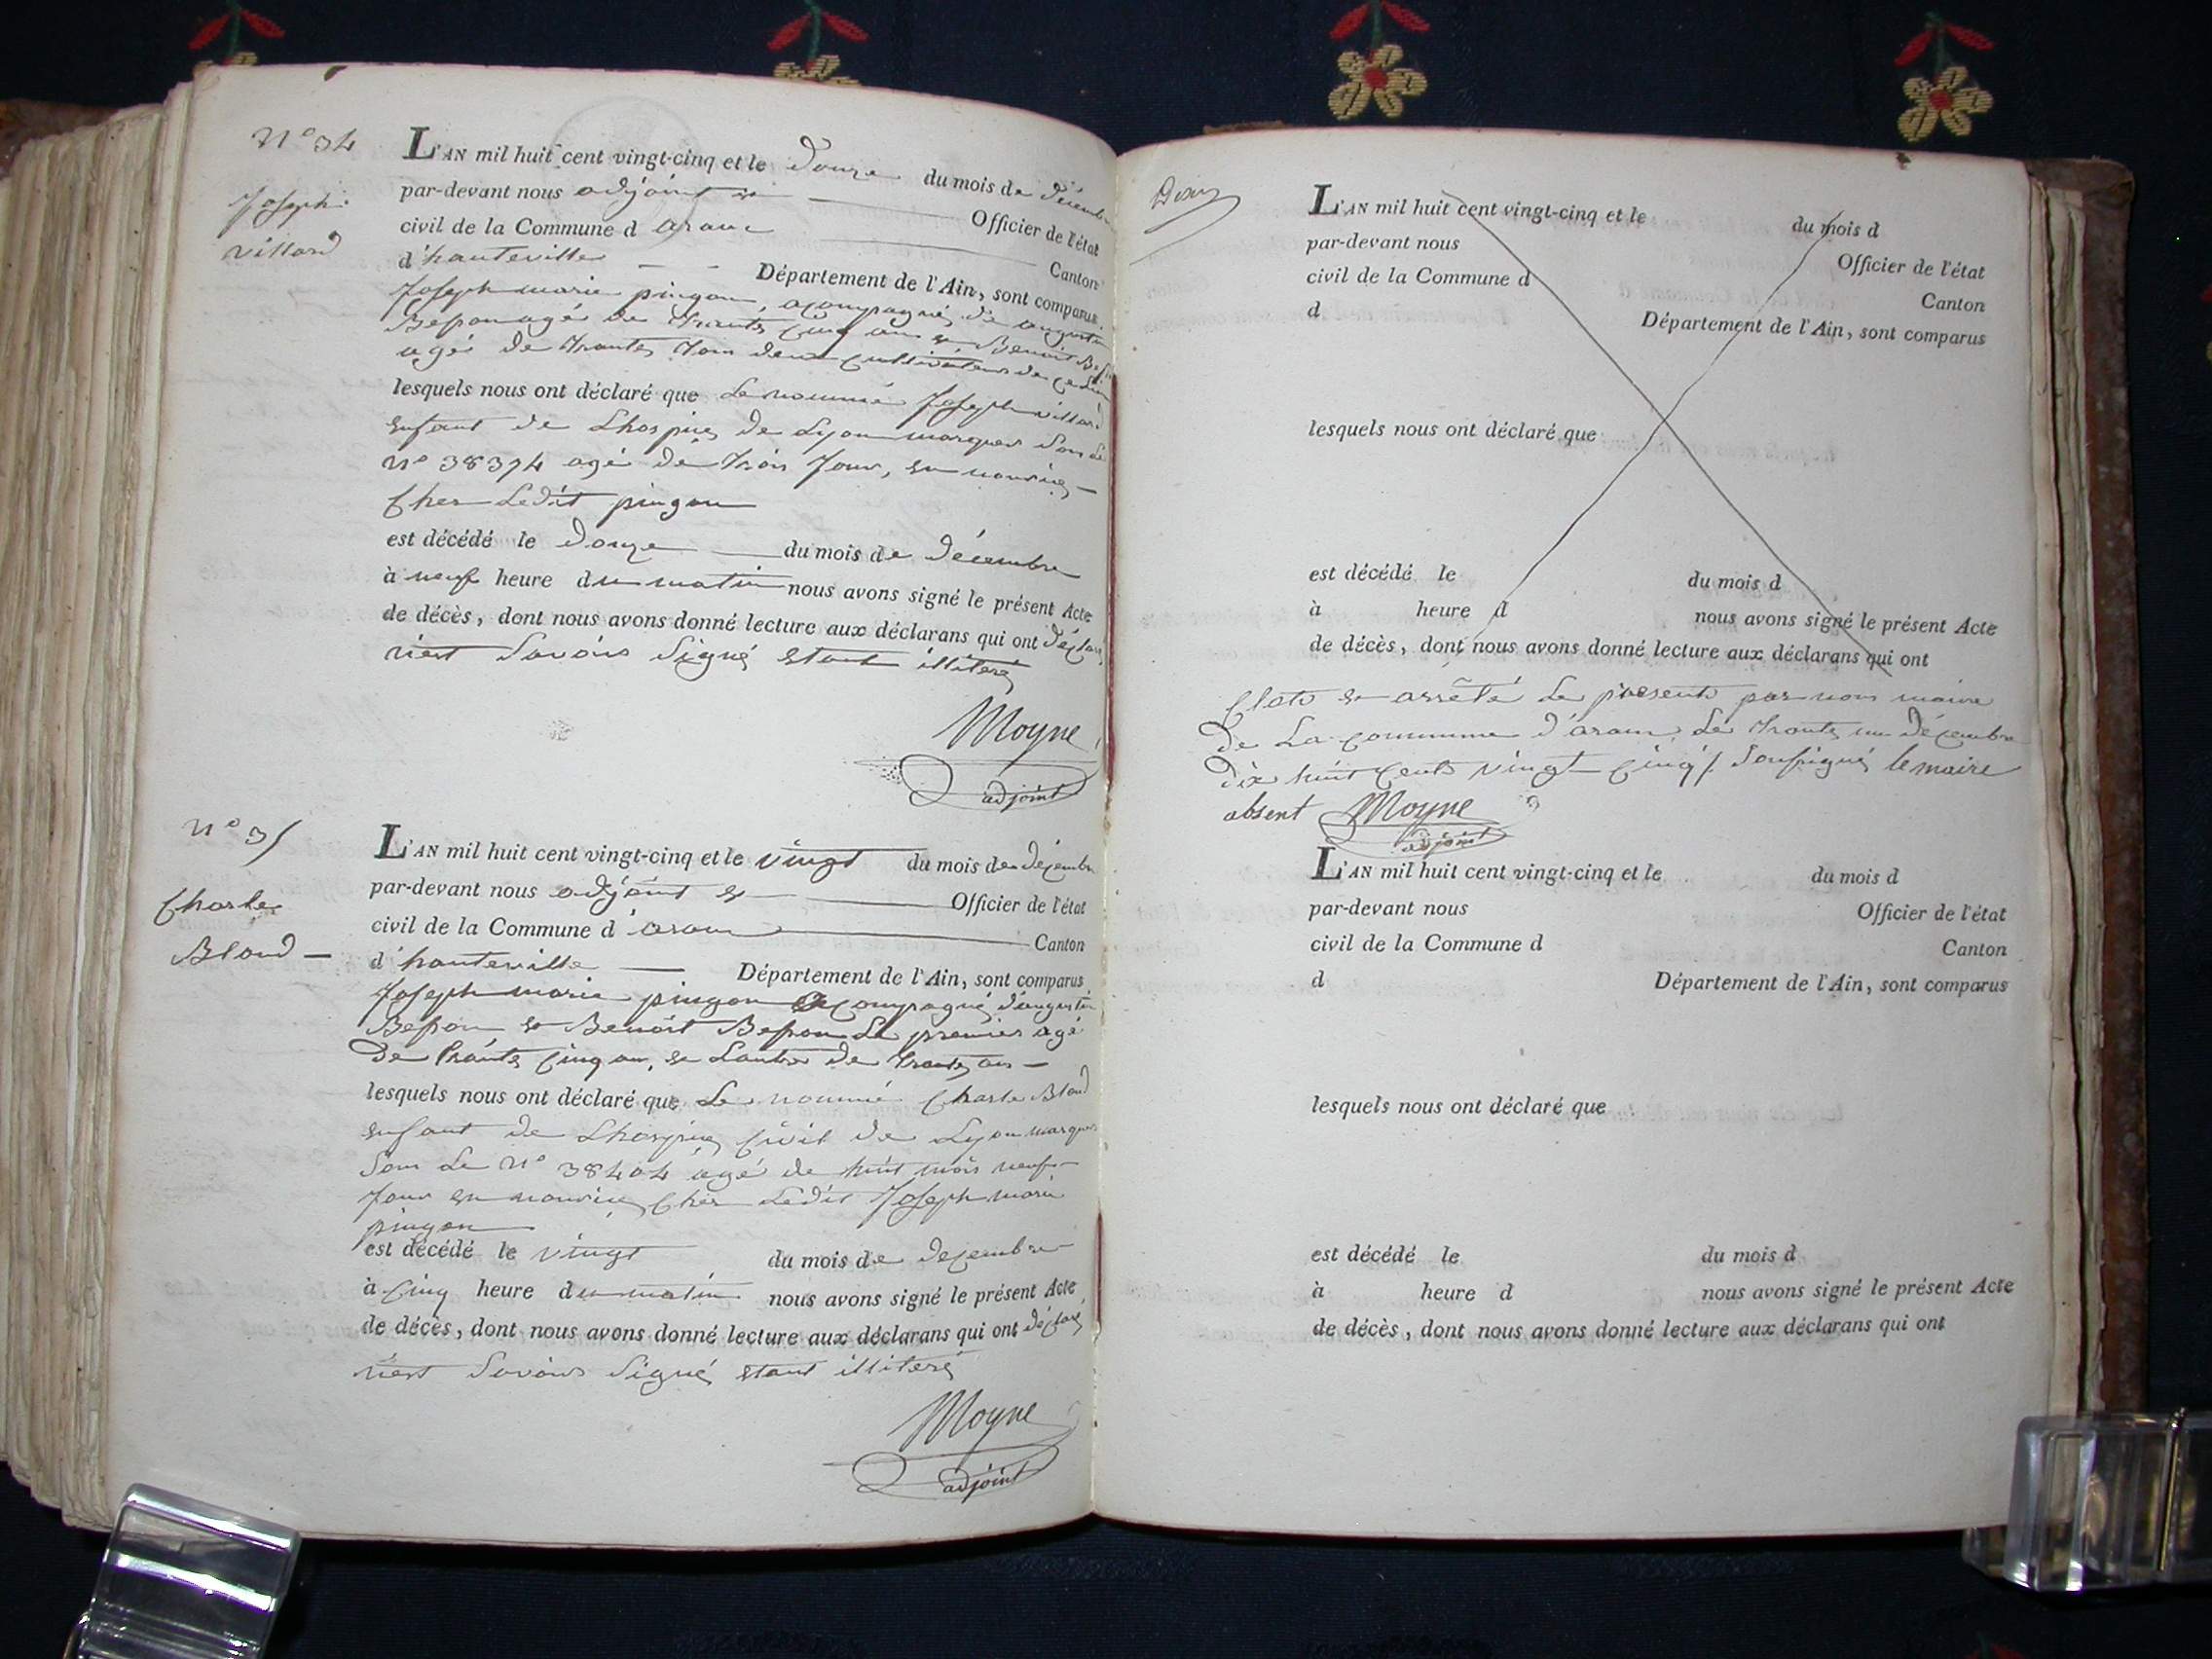 N.° 34
Joseph
villard
L'AN mil huit cent vingt-cinq et le douze du mois de décembre
par-devant nous adjoint et Officier de l'état
civil de la Commune d aranc Canton
d'hauteville Département de l'Ain, sont comparus
Joseph marie pingon, acompagné d'augustin
agé de trante cinq ans et Benoit
agé de trante tous deux cultivateurs de
lesquels nous ont déclaré que Le nommé Joseph villard
enfant de Lhospice de Lyon marquer sous Le
n° 38374 agé de trois Jour, en nourice
Ches Ledit pingon
est décédé le douze du mois de décembre
à neuf heure du matin nous avons signé le présent Acte
de décès, dont nous avons donné lecture aux déclarans qui ont déclaré
Savoir Signé etant illiteré
Moyne
adjoint
N° 35
Charle
Bland
L'AN mil huit cent vingt-cinq et le vingt du mois de décembre
par-devant nous adjoint et Officier de l'état
civil de la Commune d'aranc Canton
d'hauteville Département de l'Ain, sont comparus
Joseph marie pingon acompagné d'augustin
et Benoit Le premier agé
De trante cinq an, et Lautre de trante an
lesquels nous ont déclaré que Le nommé Charle Bland
enfant de Lhospice Civil de Lyon marquer
Sous Le N° 38404 agé de huit mois neuf
Jour en nourice Ches Ledit Joseph marie
pingon
est décédé le vingt du mois de decembre
à cinq heure du matin nous avons signé le présent Acte
de décès, dont nous avons donné lecture aux déclarans qui ont déclaré
Savoir Signé etant illiteré
Moyne
adjoint
L'AN mil huit cent vingt-cinq et le du mois d
par-devant nous Officier de l'état
civil de la Commune d Canton
d Département de l'Ain, sont comparus
lesquels nous ont déclaré que
est décédé le du mois d
à heure d nous avons signé le présent Acte
de décès, dont nous avons donné lecture aux déclarans qui ont
Clos et arrêté Le présent par nous maire
de La commune d'aranc Le trante un décembre
dix huit cents vingt cinq Soussigné le maire
absent Moyne
adjoint
L'AN mil huit cent vingt-cinq et le du mois d
par-devant nous Officier de l'état
civil de la Commune d Canton
d Département de l'Ain, sont comparus
lesquels nous ont déclaré que
est décédé le du mois d
à heure d nous avons signé le présent Acte
de décès, dont nous avons donné lecture aux déclarans qui ont